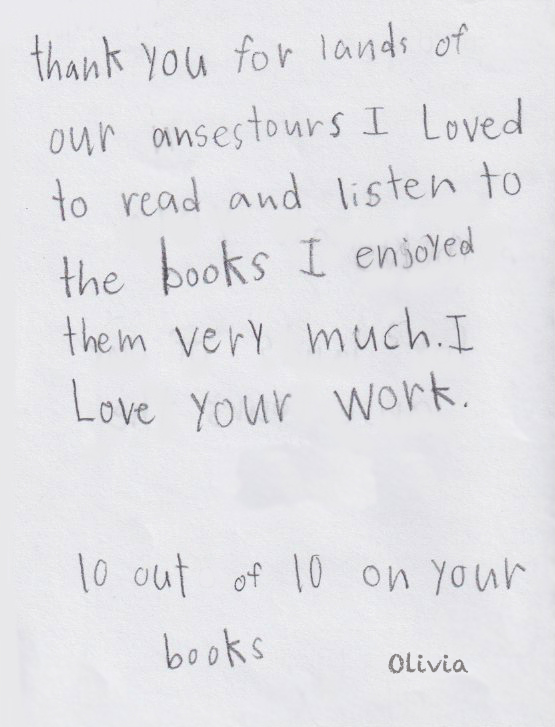 thank you for lands of
our ansestours I Loved
to read and listen to
the books I enjoyed
them very much. I
Love your work.
10 out of 10 on your
books
Olivia